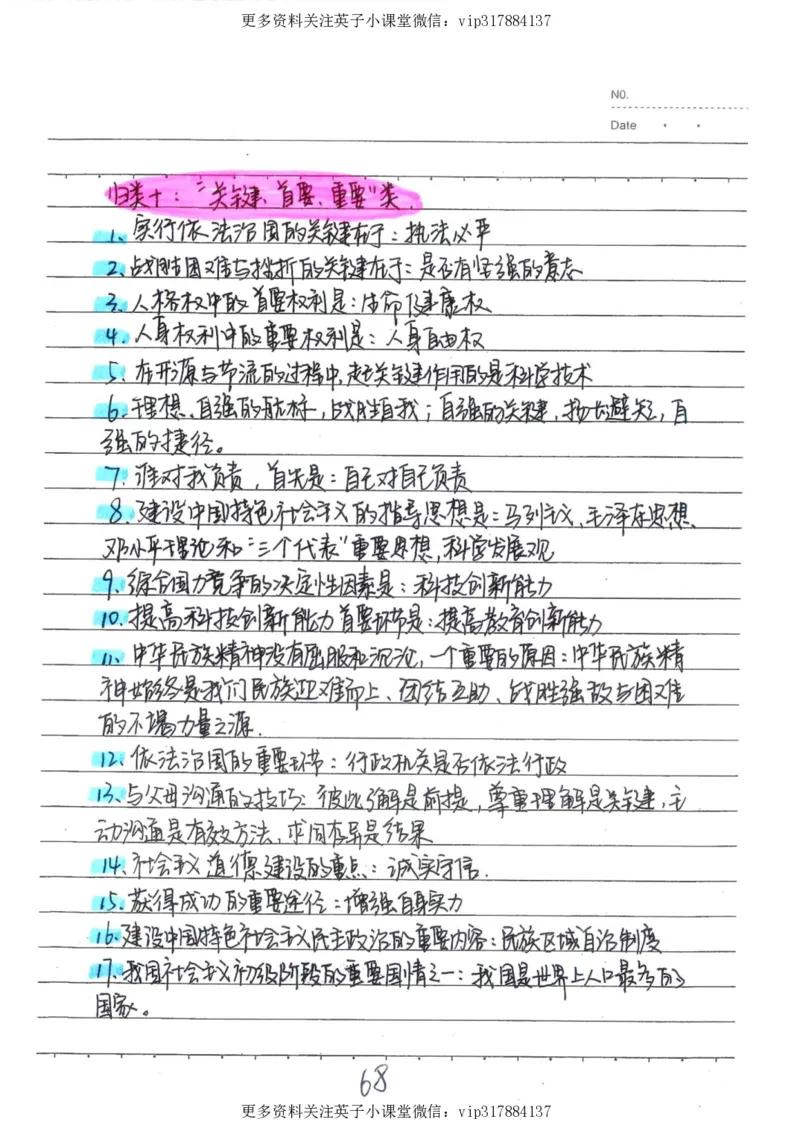 更多资料关注英子小课堂微信：vip317884137
NO.
Date
归类十："关键、首要、重要"类.
1、实行依法治国的关键在于：执法必严
2、战胜困难与挫折的关键在于：是否有坚强的意志
3、人格权中的首要权利是：生命健康权
4、人身权利中的重要权利是：人身自由权
5、在开源与节流的过程中,起关键作用的是科学技术
6、理想,自强的航标,战胜自我；自强的关键,扬长避短,自
强的捷径。
7、谁对我负责,首先是：自己对自己负责
8、建设中国特色社会主义的指导思想是：马列主义、毛泽东思想、
邓小平理论和"三个代表"重要思想,科学发展观
9、综合国力竞争的决定性因素是：科技创新能力
10、提高科技创新能力首要环节是：提高教育创新能力
11、中华民族精神没有屈服和沉沦,一个重要的原因：中华民族精
神始终是我们民族迎难而上、团结互助、战胜强敌与困难
的不竭力量之源.
12、依法治国的重要环节：行政机关是否依法行政
13、与父母沟通的技巧：彼此了解是前提,尊重理解是关键,主
动沟通是有效方法,求同存异是结果
14、社会主义道德建设的重点：诚实守信.
15、获得成功的重要途径：增强自身实力
16、建设中国特色社会主义民主政治的重要内容：民族区域自治制度
17、我国社会主义初级阶段的重要国情之一：我国是世界上人口最多的
国家。
68
更多资料关注英子小课堂微信：vip317884137